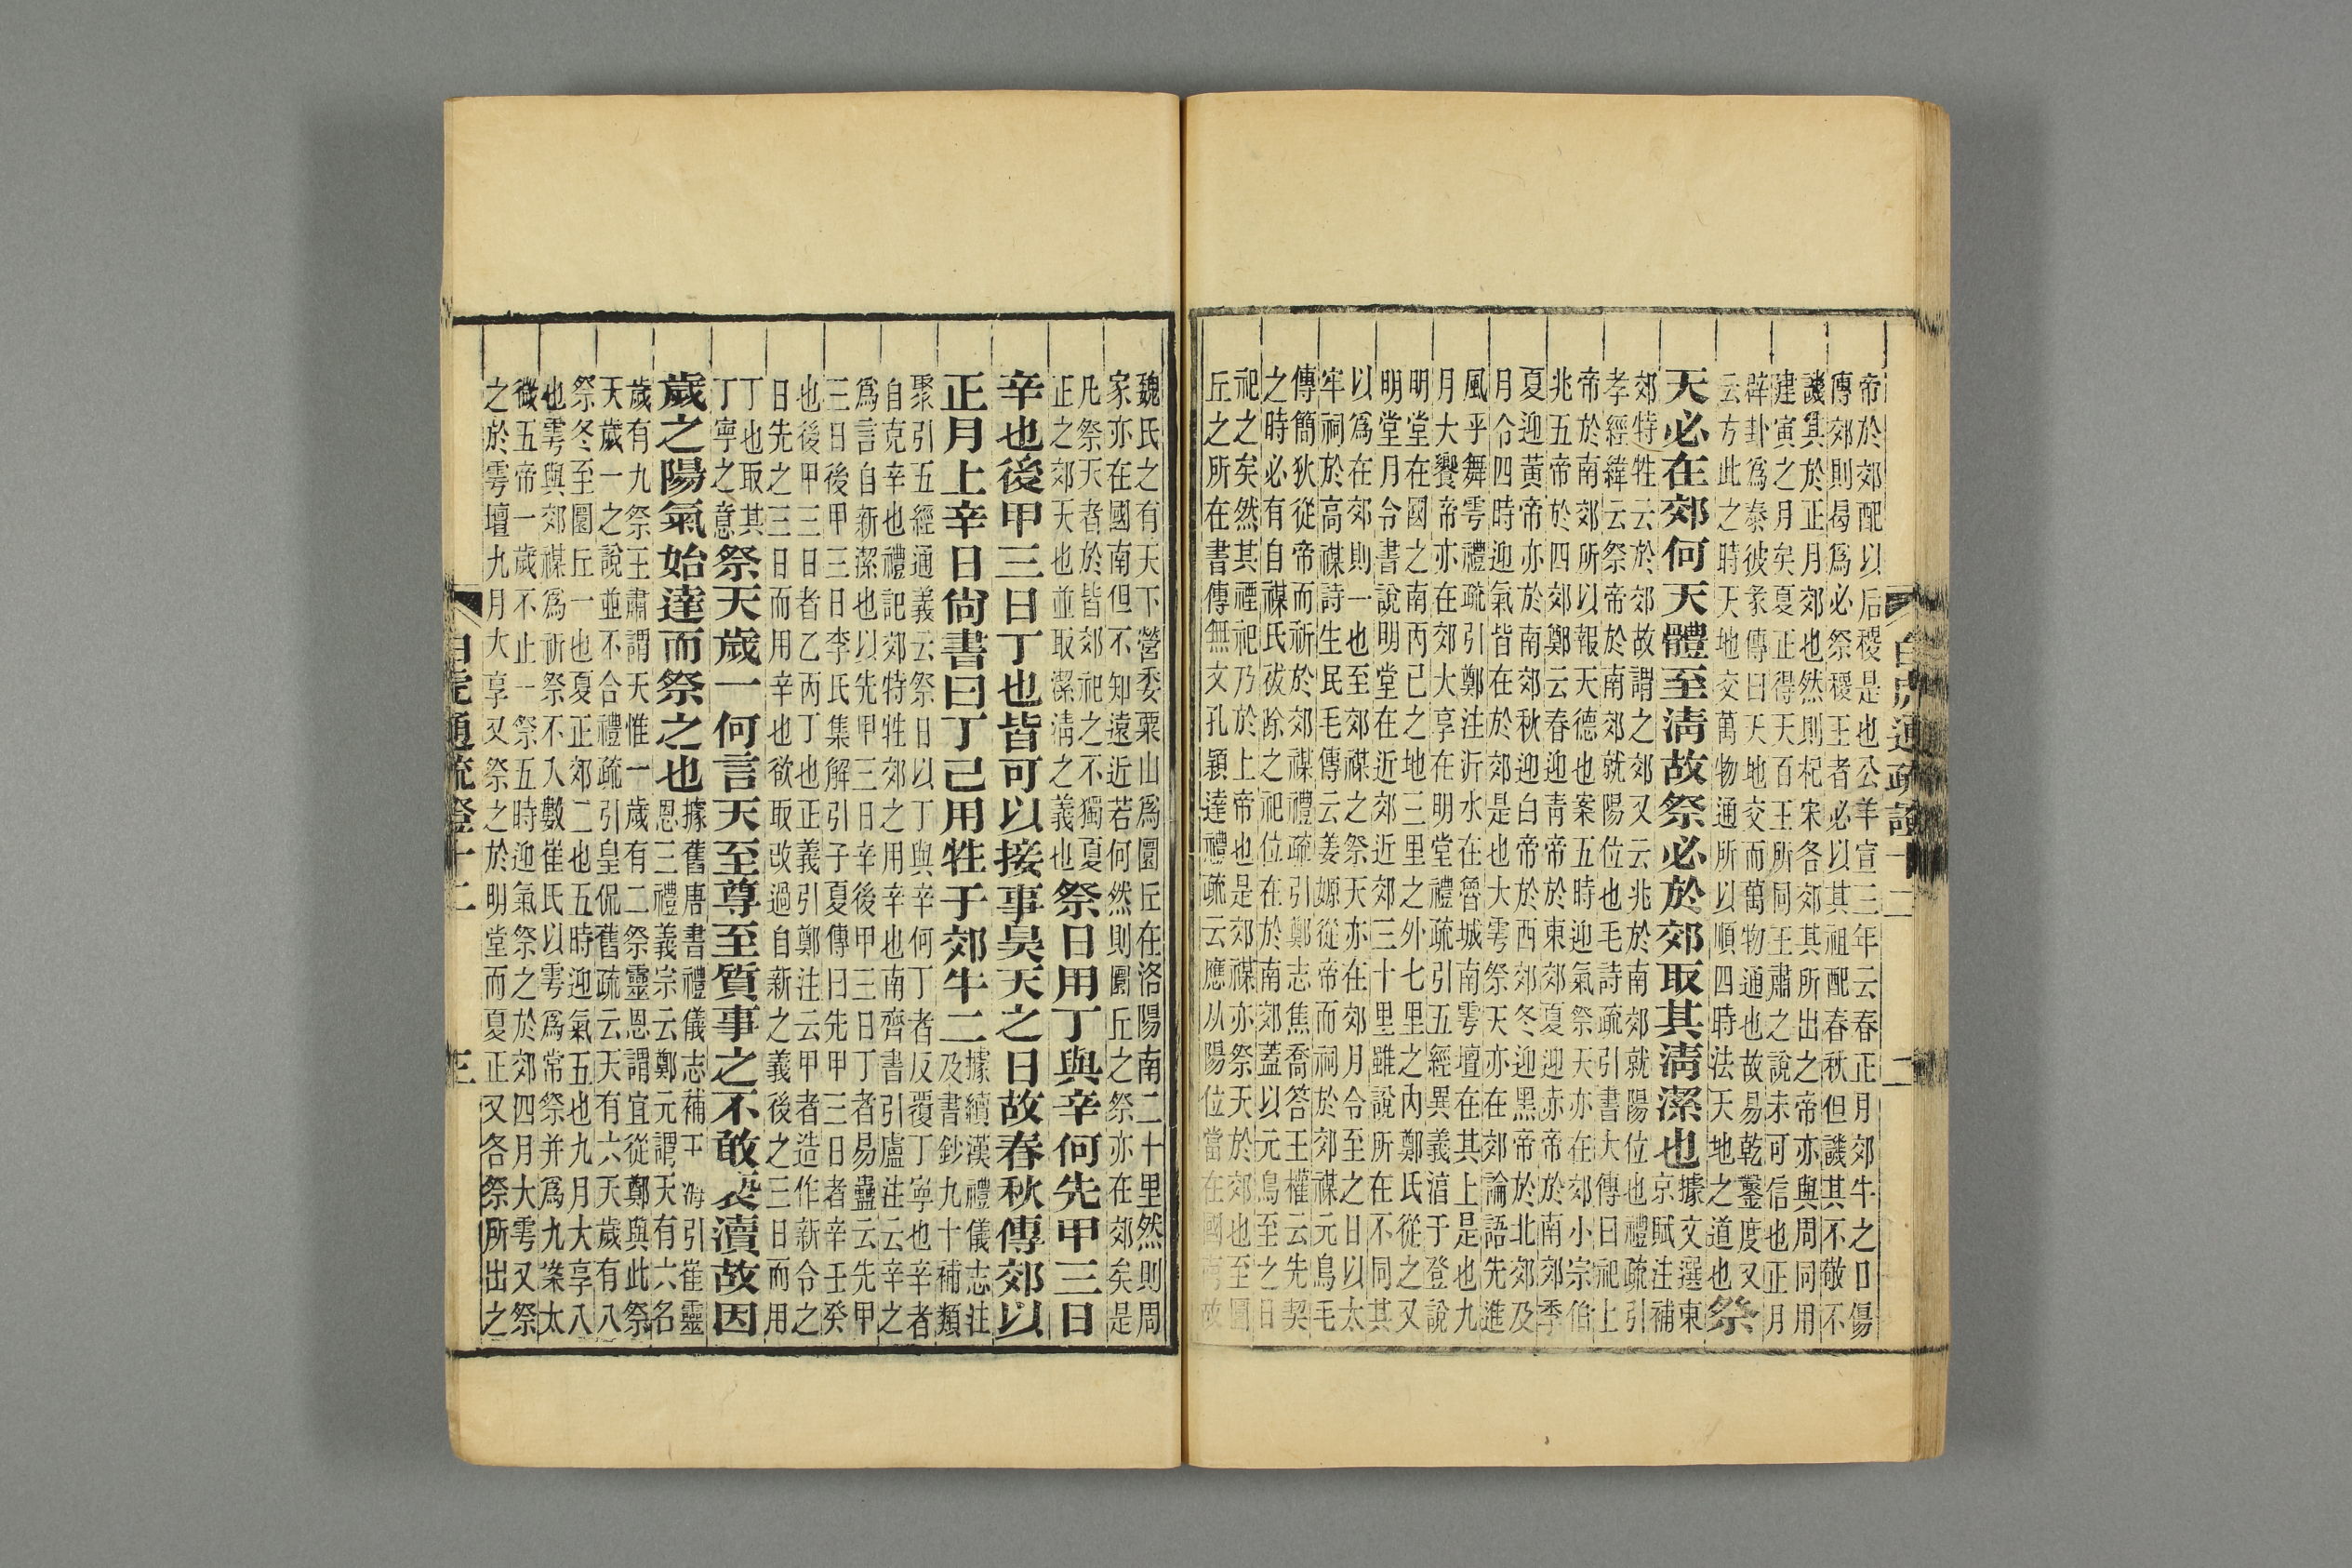 帝於郊配以后稷是也公羊宣三年云春正月郊牛之口傷
傳郊則曷爲必祭稷王者必以其祖配春秋但譏其不敬不
譏其於正月郊也然則杞宋各郊其所出之帝亦與周同用
建寅之月矣夏正得天百王所同王肅之說未可信也正月
辟卦爲泰彼彖傳曰天地交而萬物通也故易乾鑿度又
云方此之時天地交萬物通所以順四時法天地之道也祭
天必在郊何天體至淸故祭必於郊取其淸潔也據文選東
京賦注補
郊特牲云於郊故謂之郊又云兆於南郊就陽位也禮疏引
孝經緯云祭帝於南郊就陽位也毛詩疏引書大傳曰祀上
帝於南郊所以報天德也案五時迎氣祭天亦在郊小宗伯
兆五帝於四郊鄭云春迎青帝於東郊夏迎赤帝於南郊季
夏迎黃帝亦於南郊秋迎白帝於西郊冬迎黑帝於北郊及
月令四時迎氣皆在於郊是也大雩祭天亦在郊論語先進
風乎舞雩禮疏引鄭注沂水在魯城南雩壇在其上是也九
月大饗帝亦在郊大享在明堂禮疏引五經異義淯于登說
明堂在國之南丙己之地三里之外七里之內鄭氏從之又
明堂月令書說明堂在近郊近郊三十里雖說所在不同其
以爲在郊則一也至郊禖之祭天亦在郊月令至之日以太
牢祠於高禖詩生民毛傳云姜嫄從帝而祠於郊禖元鳥毛
傳簡狄從帝而祈於郊禖禮疏引鄭志焦喬答王權云先契
之時必有自禖氏祓除之祀位在於南郊蓋以元鳥至之日
祀之矣然其禋祀乃於上帝也是郊禖亦祭天於郊也至圜
丘之所在書傳無文孔穎達禮疏云應从陽位當在國南故
魏氏之有天下營委粟山爲圜丘在洛陽南二十里然則周
家亦在國南但不知遠近若何然則圜丘之祭亦在郊矣是
凡祭天者於皆郊祀之不獨夏
正之郊天也並取潔淸之義也祭日用丁與辛何先甲三日
辛也後甲三日丁也皆可以接事昊天之日故春秋傳郊以
正月上辛日尙書曰丁己用牲于郊牛二據續漢禮儀志注
及書鈔九十補類
聚引五經通義云祭日以丁與辛何丁者反覆丁寧也辛者
自克辛也禮記郊特牲郊之用辛也南齊書引盧注云辛之
爲言自新潔也以先甲三日辛後甲三日丁者易蠱云先甲
三日後甲三日李氏集解引子夏傳曰先甲三日者辛壬癸
也後甲三日者乙丙丁也正義引鄭注云甲者造作新令之
日先之三日而用辛也欲取改過自新之義後之三日而用
丁也取其
丁寧之意祭天歲一何言天至尊至質事之不敢褻瀆故因
歲之陽氣始達而祭之也據舊唐書禮儀志補玉海引崔靈
恩三禮義宗云鄭元謂天有六名
歲有九祭王肅謂天惟一歲有二祭靈恩謂宜從鄭與此祭
天歲一之說並不合禮疏引皇侃舊疏云天有六天歲有八
祭冬至圜丘一也夏正郊二也五時迎氣五也九月大享八
也雩與郊禖爲祈祭不入數崔氏以雩爲常祭并爲九案太
微五帝一歲不止一祭五時迎氣祭之於郊四月大雩又祭
之於雩壇九月大享又祭之於明堂而夏正又各祭所出之
白虎通疏證十二
三
白虎通疏證十二
二